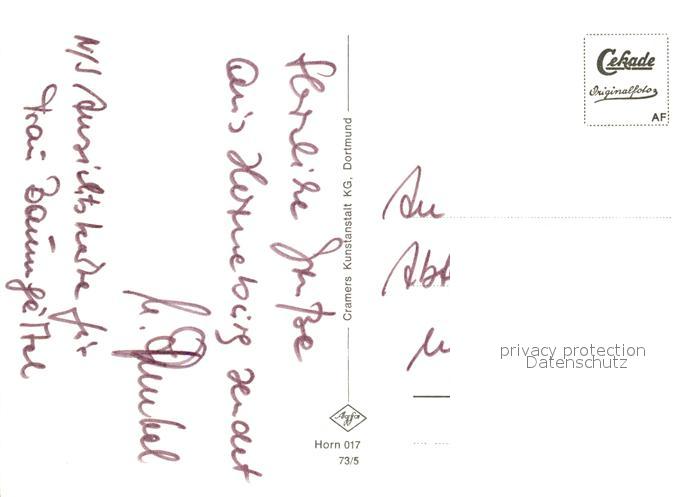 Herzliche Grüße
aus Horneburg sendet
N/S Ansichtskarte für
Frau Baumgärtel
Cramers Kunstanstalt KG, Dortmund
Agfa
Horn 017
73/5
Cekade
Originalfoto
AF
An
privacy protection
Datenschutz